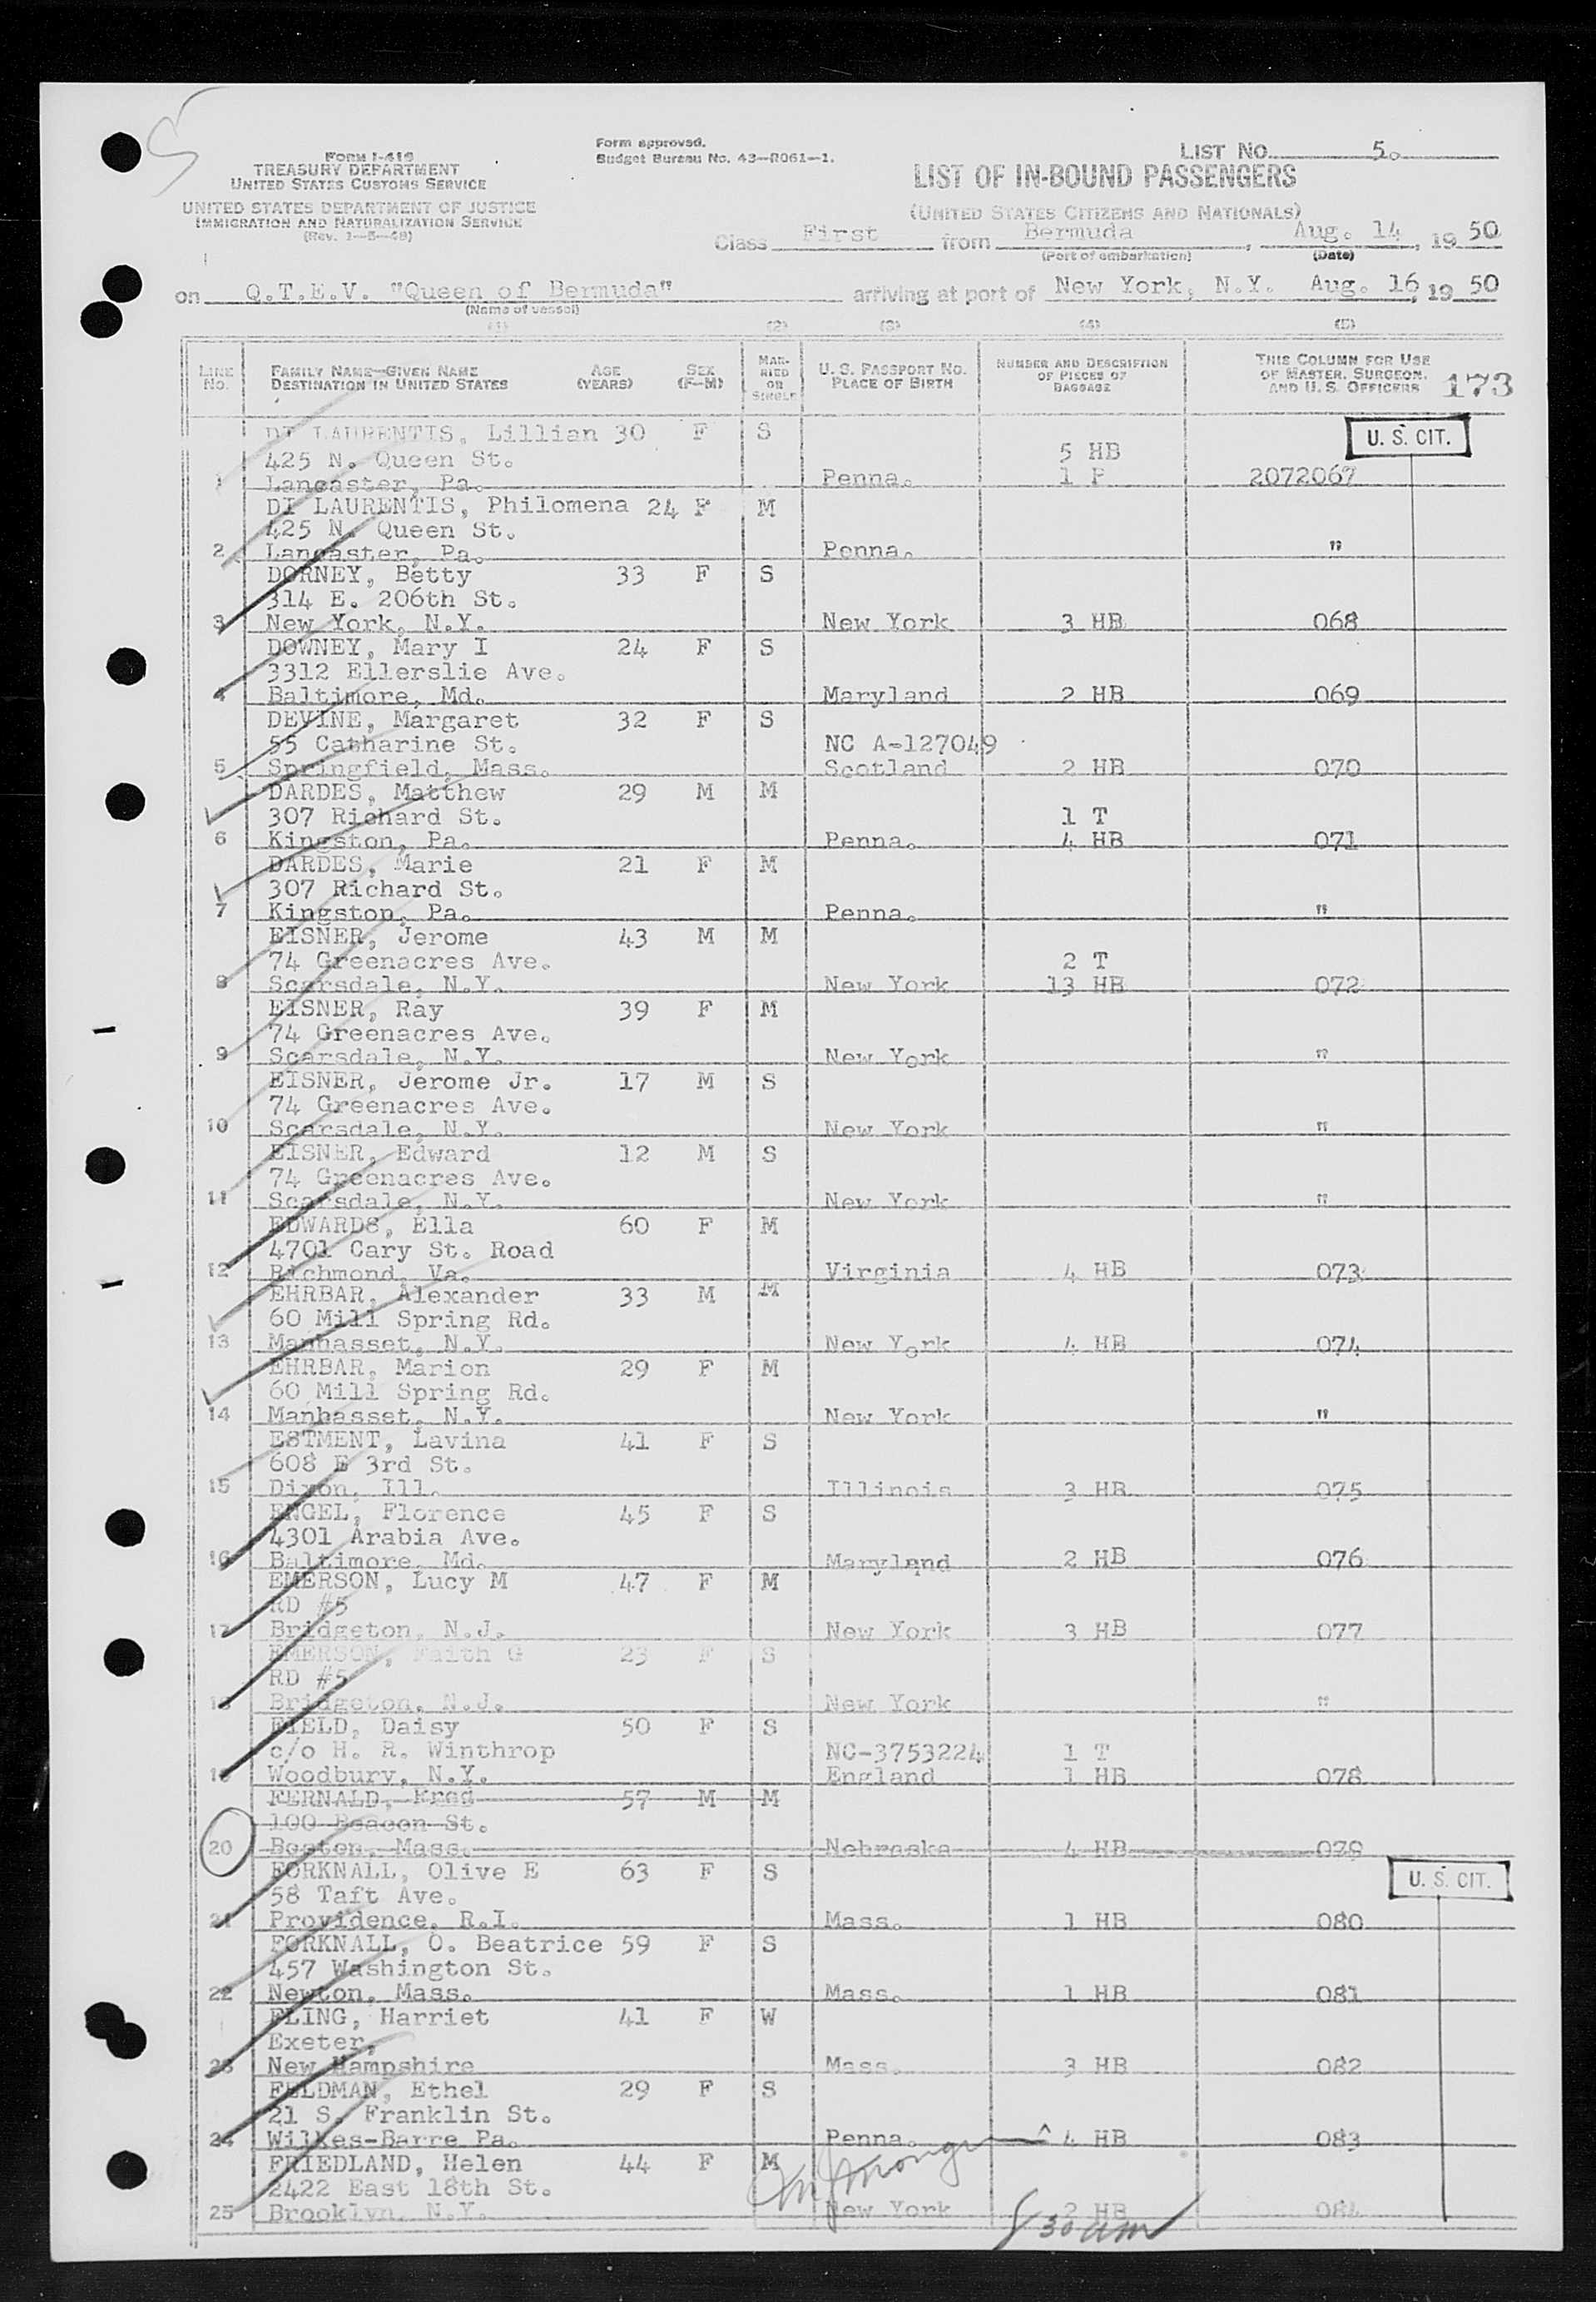 5
FORM I-418
TREASURY DEPARTMENT
UNITED STATES CUSTOMS SERVICE
UNITED STATES DEPARTMENT OF JUSTICE
IMMIGRATION AND NATURALIZATION SERVICE
(Rev. 1-5-48)
Form approved.
Budget Bureau No. 43—R061—1.
LIST NO. 5.
LIST OF IN-BOUND PASSENGERS
(UNITED STATES CITIZENS AND NATIONALS)
Class First from Bermuda, Aug. 14, 19 50
(Port of embarkation) (Date)
on Q.T.E.V. "Queen of Bermuda" arriving at port of New York, N.Y. Aug. 16, 19 50
(Name of vessel)
(1) (2) (3) (4) (5)
LINE NO. FAMILY NAME—GIVEN NAME DESTINATION IN UNITED STATES AGE (YEARS) SEX (F—M) MARRIED OR SINGLE U. S. PASSPORT NO. PLACE OF BIRTH NUMBER AND DESCRIPTION OF PIECES OF BAGGAGE THIS COLUMN FOR USE OF MASTER, SURGEON, AND U. S. OFFICERS 173
DI LAURENTIS, Lillian 30 F S U. S. CIT.
425 N. Queen St. 5 HB
1 Lancaster, Pa. Penna. 1 P 2072067
DI LAURENTIS, Philomena 24 F M
425 N. Queen St.
2 Lancaster, Pa. Penna. "
DORNEY, Betty 33 F S
314 E. 206th St.
3 New York, N.Y. New York 3 HB 068
DOWNEY, Mary I 24 F S
3312 Ellerslie Ave.
4 Baltimore, Md. Maryland 2 HB 069
DEVINE, Margaret 32 F S
55 Catharine St. NC A-127049
5 Springfield, Mass. Scotland 2 HB 070
DARDES, Matthew 29 M M
307 Richard St. 1 T
6 Kingston, Pa. Penna. 4 HB 071
DARDES, Marie 21 F M
307 Richard St.
7 Kingston, Pa. Penna. "
EISNER, Jerome 43 M M
74 Greenacres Ave. 2 T
8 Scarsdale, N.Y. New York 13 HB 072
EISNER, Ray 39 F M
74 Greenacres Ave.
9 Scarsdale, N.Y. New York "
EISNER, Jerome Jr. 17 M S
74 Greenacres Ave.
10 Scarsdale, N.Y. New York "
EISNER, Edward 12 M S
74 Greenacres Ave.
11 Scarsdale, N.Y. New York "
EDWARDS, Ella 60 F M
4701 Cary St. Road
12 Richmond, Va. Virginia 4 HB 073
EHRBAR, Alexander 33 M M
60 Mill Spring Rd.
13 Manhasset, N.Y. New York 4 HB 074
EHRBAR, Marion 29 F M
60 Mill Spring Rd.
14 Manhasset, N.Y. New York "
ESTMENT, Lavina 41 F S
608 E 3rd St.
15 Dixon, Ill. Illinois 3 HB 075
ENGEL, Florence 45 F S
4301 Arabia Ave.
16 Baltimore, Md. Maryland 2 HB 076
EMERSON, Lucy M 47 F M
RD #5
17 Bridgeton, N.J. New York 3 HB 077
EMERSON, Faith G 23 F S
RD #5
18 Bridgeton, N.J. New York "
FIELD, Daisy 50 F S
c/o H. R. Winthrop NC-3753224 1 T
19 Woodbury, N.Y. England 1 HB 078
FERNALD, Fred 57 M M
100 Beacon St.
20 Boston, Mass. Nebraska 4 HB 079
FORKNALL, Olive E 63 F S U. S. CIT.
58 Taft Ave.
21 Providence, R.I. Mass. 1 HB 080
FORKNALL, O. Beatrice 59 F S
457 Washington St.
22 Newton, Mass. Mass. 1 HB 081
FLING, Harriet 41 F W
Exeter,
23 New Hampshire Mass. 3 HB 082
FELDMAN, Ethel 29 F S
21 S. Franklin St.
24 Wilkes-Barre Pa. Penna. 4 HB 083
FRIEDLAND, Helen 44 F M
2422 East 18th St.
25 Brooklyn, N.Y. New York 2 HB 084
8 30 am